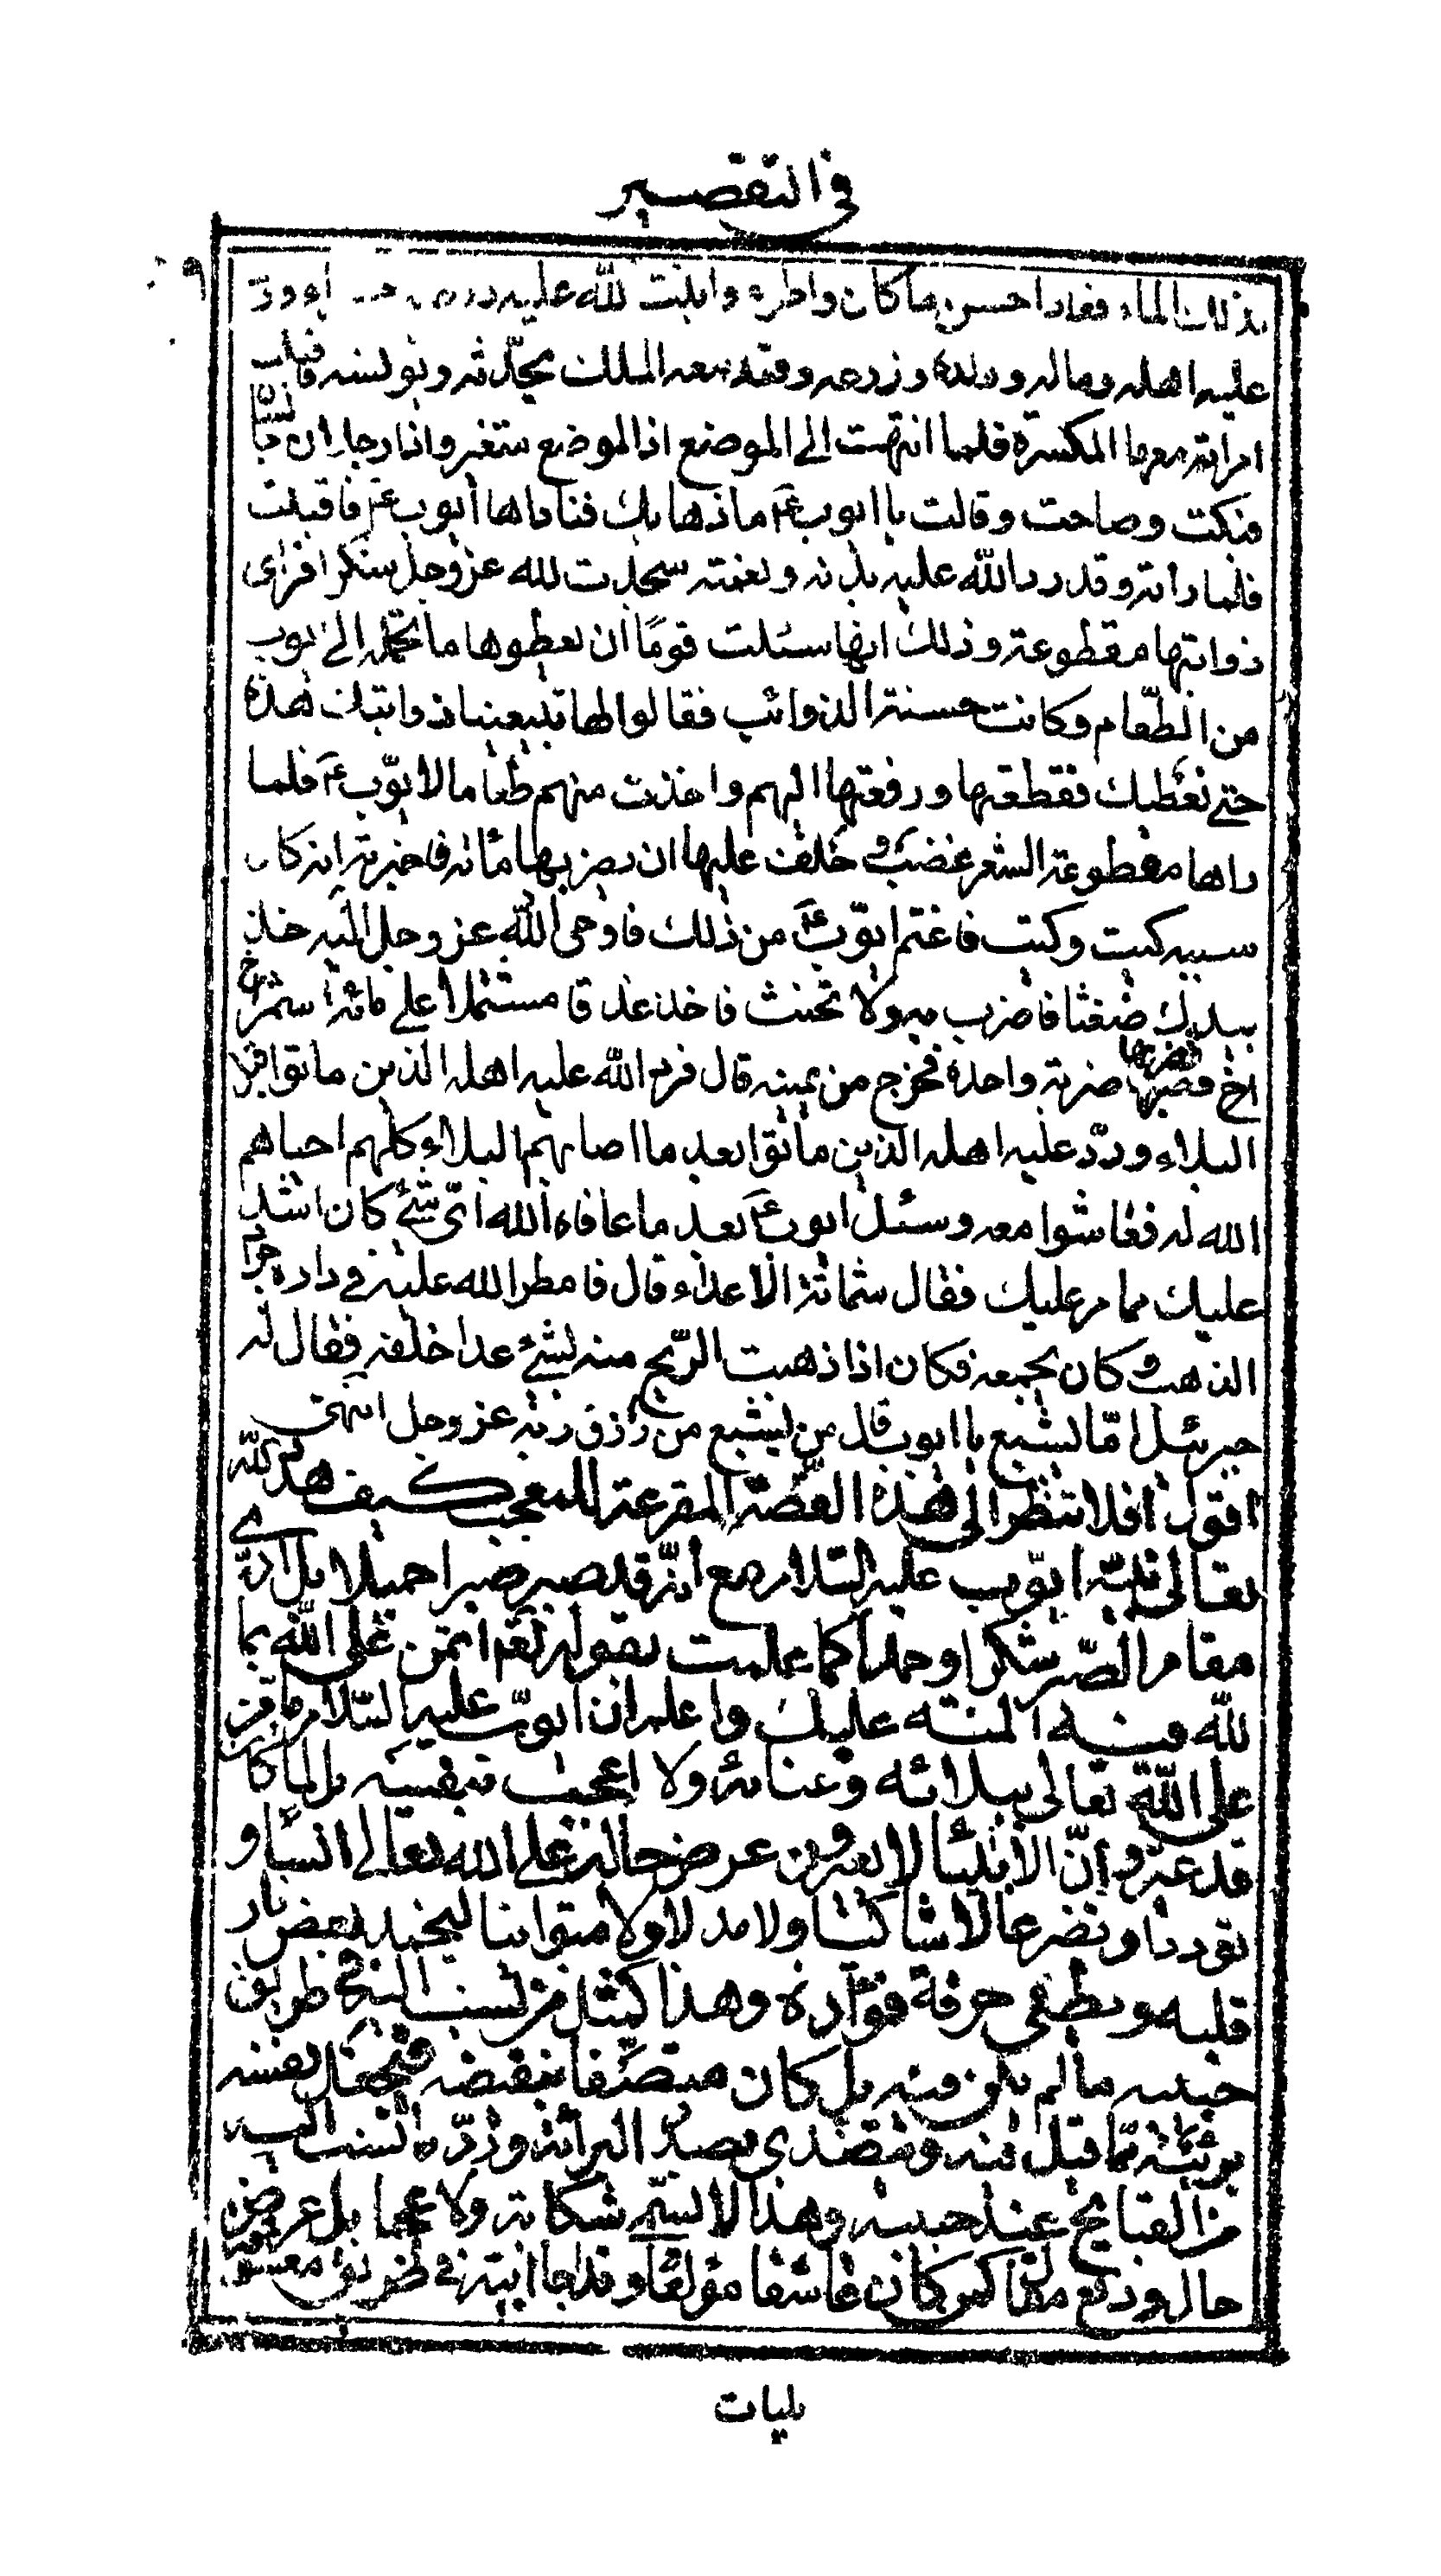 في التقصير
٩
بذلك الماء فعاد احسن ما كان واطرء وانبت الله عليه ورد
عليه اهله وماله وولده وزرعه وقعد معه الملك يحدثه ويونسه فاقبلت
امراته معها الكسرة فلما انتهت الى الموضع اذ الموضع متغير واذا رجلان جالسان
فبكت وصاحت وقالت يا ايوب ع ما ذهابك فناداها ايوب ع فاقبلت
فلما راته وقد رد الله عليه بدنه ونعمته سجدت لله عز وجل شكرا فراى
ذوابتها مقطوعة وذلك انها سئلت قوما ان يعطوها ما تحمله الى ايوب
من الطعام وكانت حسنة الذوائب فقالوا لها تبيعينا ذوابتك هذه
حتى نعطيك فقطعتها ودفعتها اليهم واخذت منهم طعاما لايوب ع فلما
راها مقطوعة الشعر غضب وحلف عليها ان يضربها مائة فاخبرته انه كان
سببه كيت وكيت فاغتم ايوب ع من ذلك فاوحى الله عز وجل اليه خذ
بيدك ضغثا فاضرب به ولا تحنث فاخذ عذقا مشتملا على مائة شمراخ
فضربها ضربة واحدة فخرج من يمينه قال فرد الله عليه اهله الذين ماتوا قبل
البلاء ورد عليه اهله الذين ماتوا بعد ما اصابهم البلاء كلهم احياهم
الله له فعاشوا معه وسئل ايوب ع بعد ما عافاه الله اي شئ كان اشد
عليك مما مر عليك فقال شماتة الاعداء قال فامطر الله عليه في داره جراد
الذهب وكان يجمعه فكان اذا ذهبت الريح منه بشئ عدا خلفه فقال له
جبرئيل اما تشبع يا ايوب قال من يشبع من رزق ربه عز وجل انتهى
اقول افلا تنظر الى هذه القصة المقرعة للمعجب كيف هدد الله
تعالى نبيه ايوب عليه السلام مع انه قد صبر صبرا جميلا بل ادى
مقام الصبر شكرا وحمدا كما علمت بقوله نعم اتمن على الله بما
لله فيه المنة عليك واعلم ان ايوب عليه السلام ما من
على الله تعالى ببلائه وعنائه ولا اعجب بنفسه بل لما كان
تعالى
توددا وتضرعا لا شاكيا ولا مدلا ولا متوانيا ليخمد بعض نار
قلبه ويطفي حرقة فؤاده وهذا كمثل من نسب اليه في طريق
حبيبه ما لم يكن فيه بل كان متصفا بنقيضه فيجعل نفسه
بريئة مما قيل فيه ويتصدى بصدد البرائة ورد ما نسب اليه
من القبايح عند حبيبه وهذا لا يسمى شكاية ولا عجبا بل عرض
حال ودفع مقال كمن كان عاشقا مولعا وقد جاء اليه في طريق معشوقه
بليات